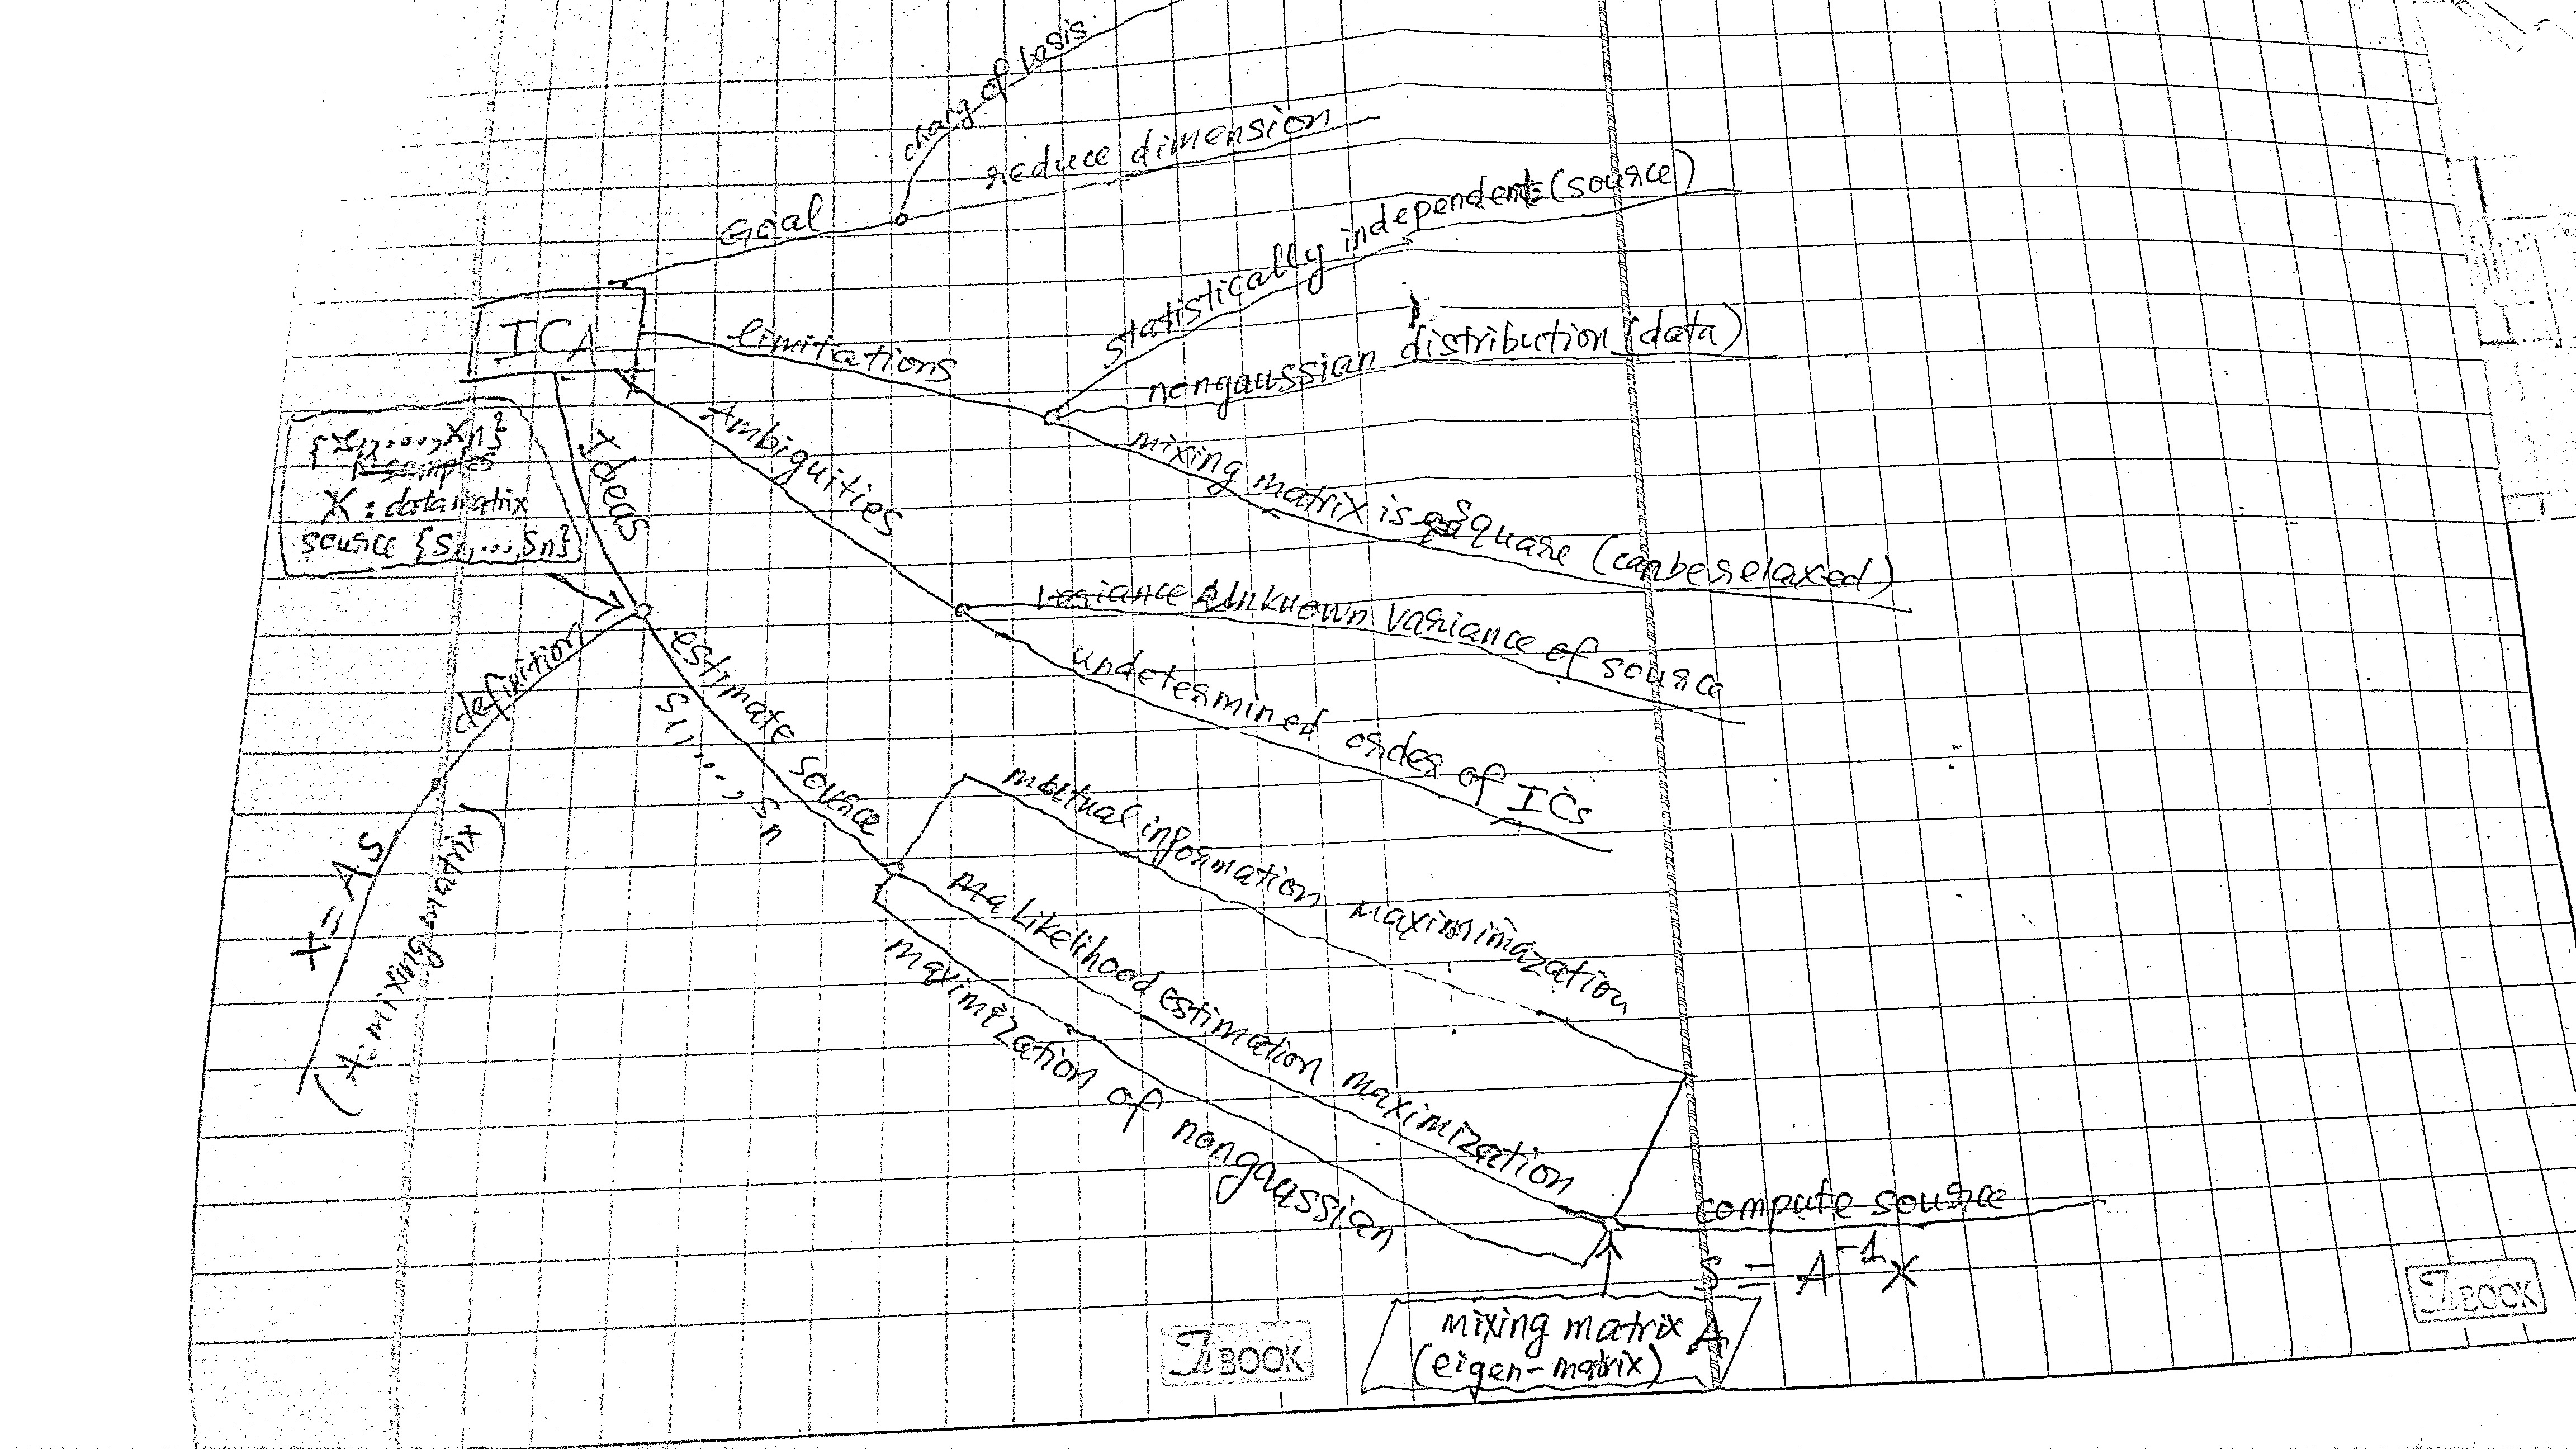 chang of basis
reduce dimension
Goal
statistically independent (source)
ICA
limitations
nongaussian distribution (data)
mixing matrix is square (can be relaxed)
Ambiguities
variance Unknown variance of source
undetermined order of ICs
{x1,...,xn}
samples
X : data matrix
source {s1,...,sn}
Ideas
definition
X = AS
(A: mixing matrix)
estimate source
s1,...,sn
mutual information maximimazation
Ma Likelihood estimation maximization
maximization of nongaussian
compute source
S = A⁻¹X
mixing matrix A
(eigen-matrix)
BOOK
BOOK